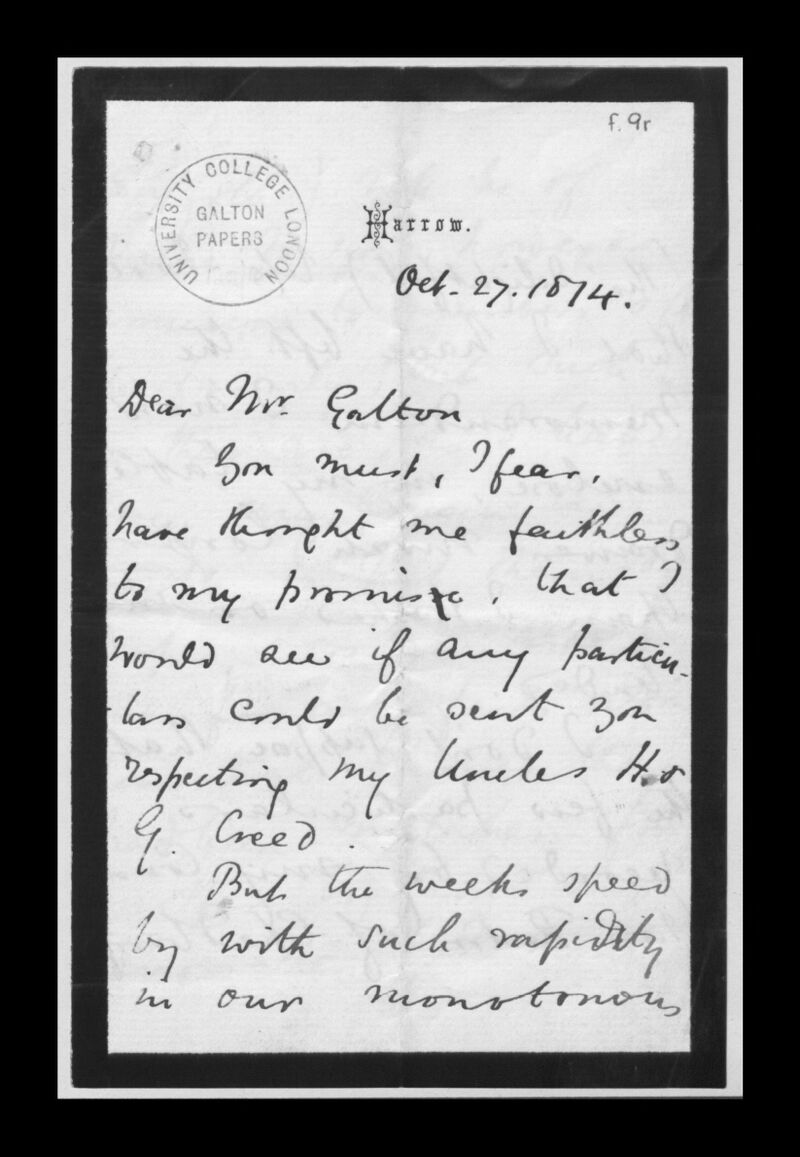 f. 9r
UNIVERSITY COLLEGE LONDON
GALTON
PAPERS
Harrow.
Oct. 27. 1874.
Dear Mr. Galton
You must, I fear,
have thought me faithless
to my promise, that I
would see if any particu-
lars could be sent you
respecting my Uncles H. &
G. Creed.
But the weeks speed
by with such rapidity
in our monotonous